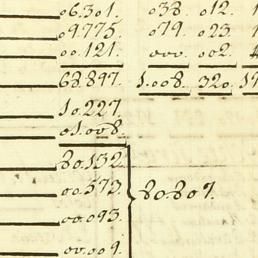 06.301. 038. 012.
09.775. 079. 023.
00.121. 000. 002.
68.897. 1.008. 320. 19
10.227.
01.008.
80.132
00.573. 80.807.
00.093.
00.009.